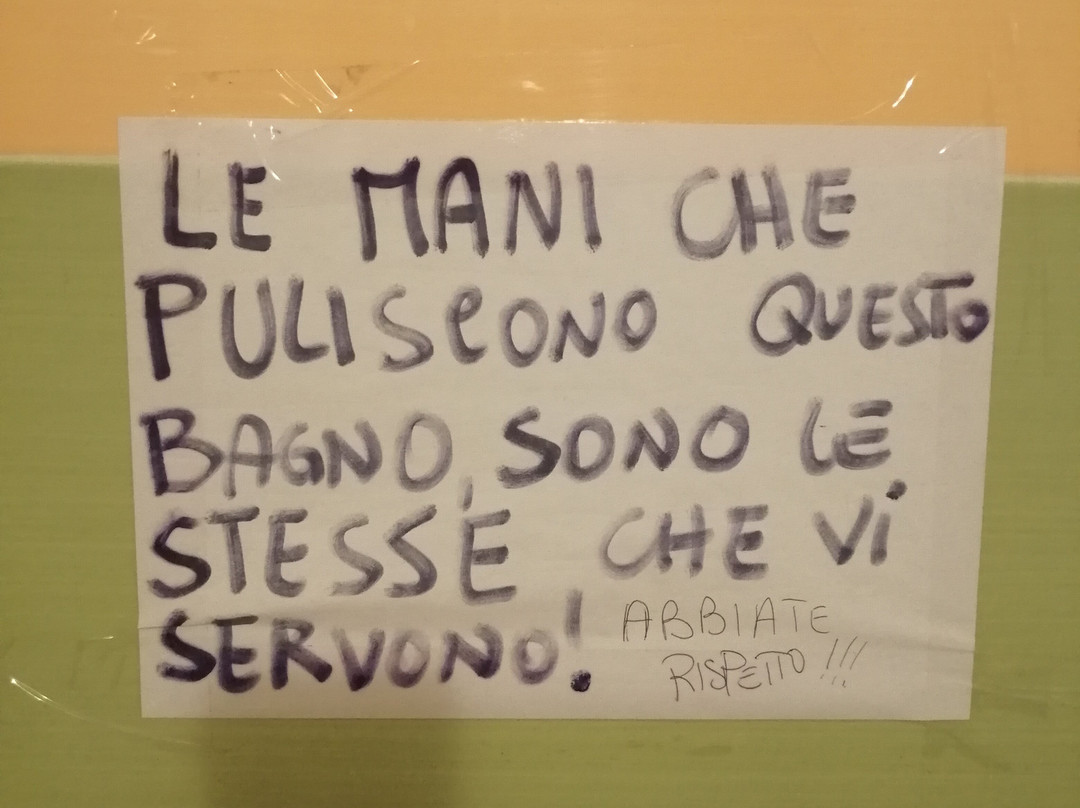 LE MANI CHE
PULISCONO QUESTO
BAGNO, SONO LE
STESSE CHE VI
SERVONO!
ABBIATE
RISPETTO!!!